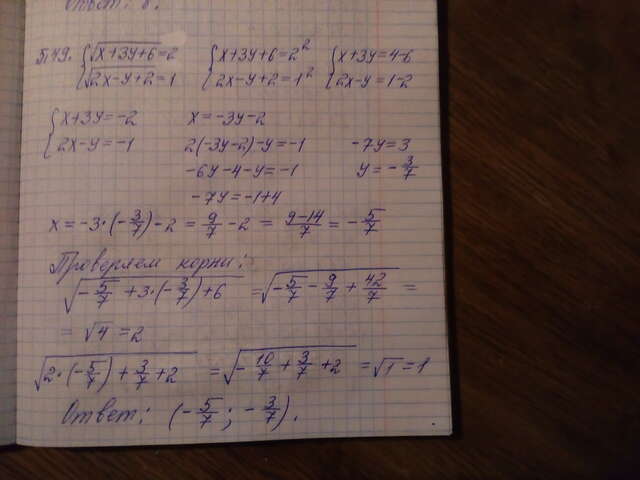 Ответ: 8.
5.49. {√(x+3y+6)=2 {x+3y+6=2² {x+3y=4-6
{√(2x-y+2)=1 {2x-y+2=1² {2x-y=1-2
{x+3y=-2 x=-3y-2
{2x-y=-1 2(-3y-2)-y=-1 -7y=3
-6y-4-y=-1 y=-3/7
-7y=-1+4
x=-3·(-3/7)-2=9/7-2=(9-14)/7=-5/7
Проверяем корни:
√(-5/7+3·(-3/7)+6)=√(-5/7-9/7+42/7)=
=√4=2
√(2·(-5/7)+3/7+2)=√(-10/7+3/7+2)=√1=1
Ответ: (-5/7; -3/7).